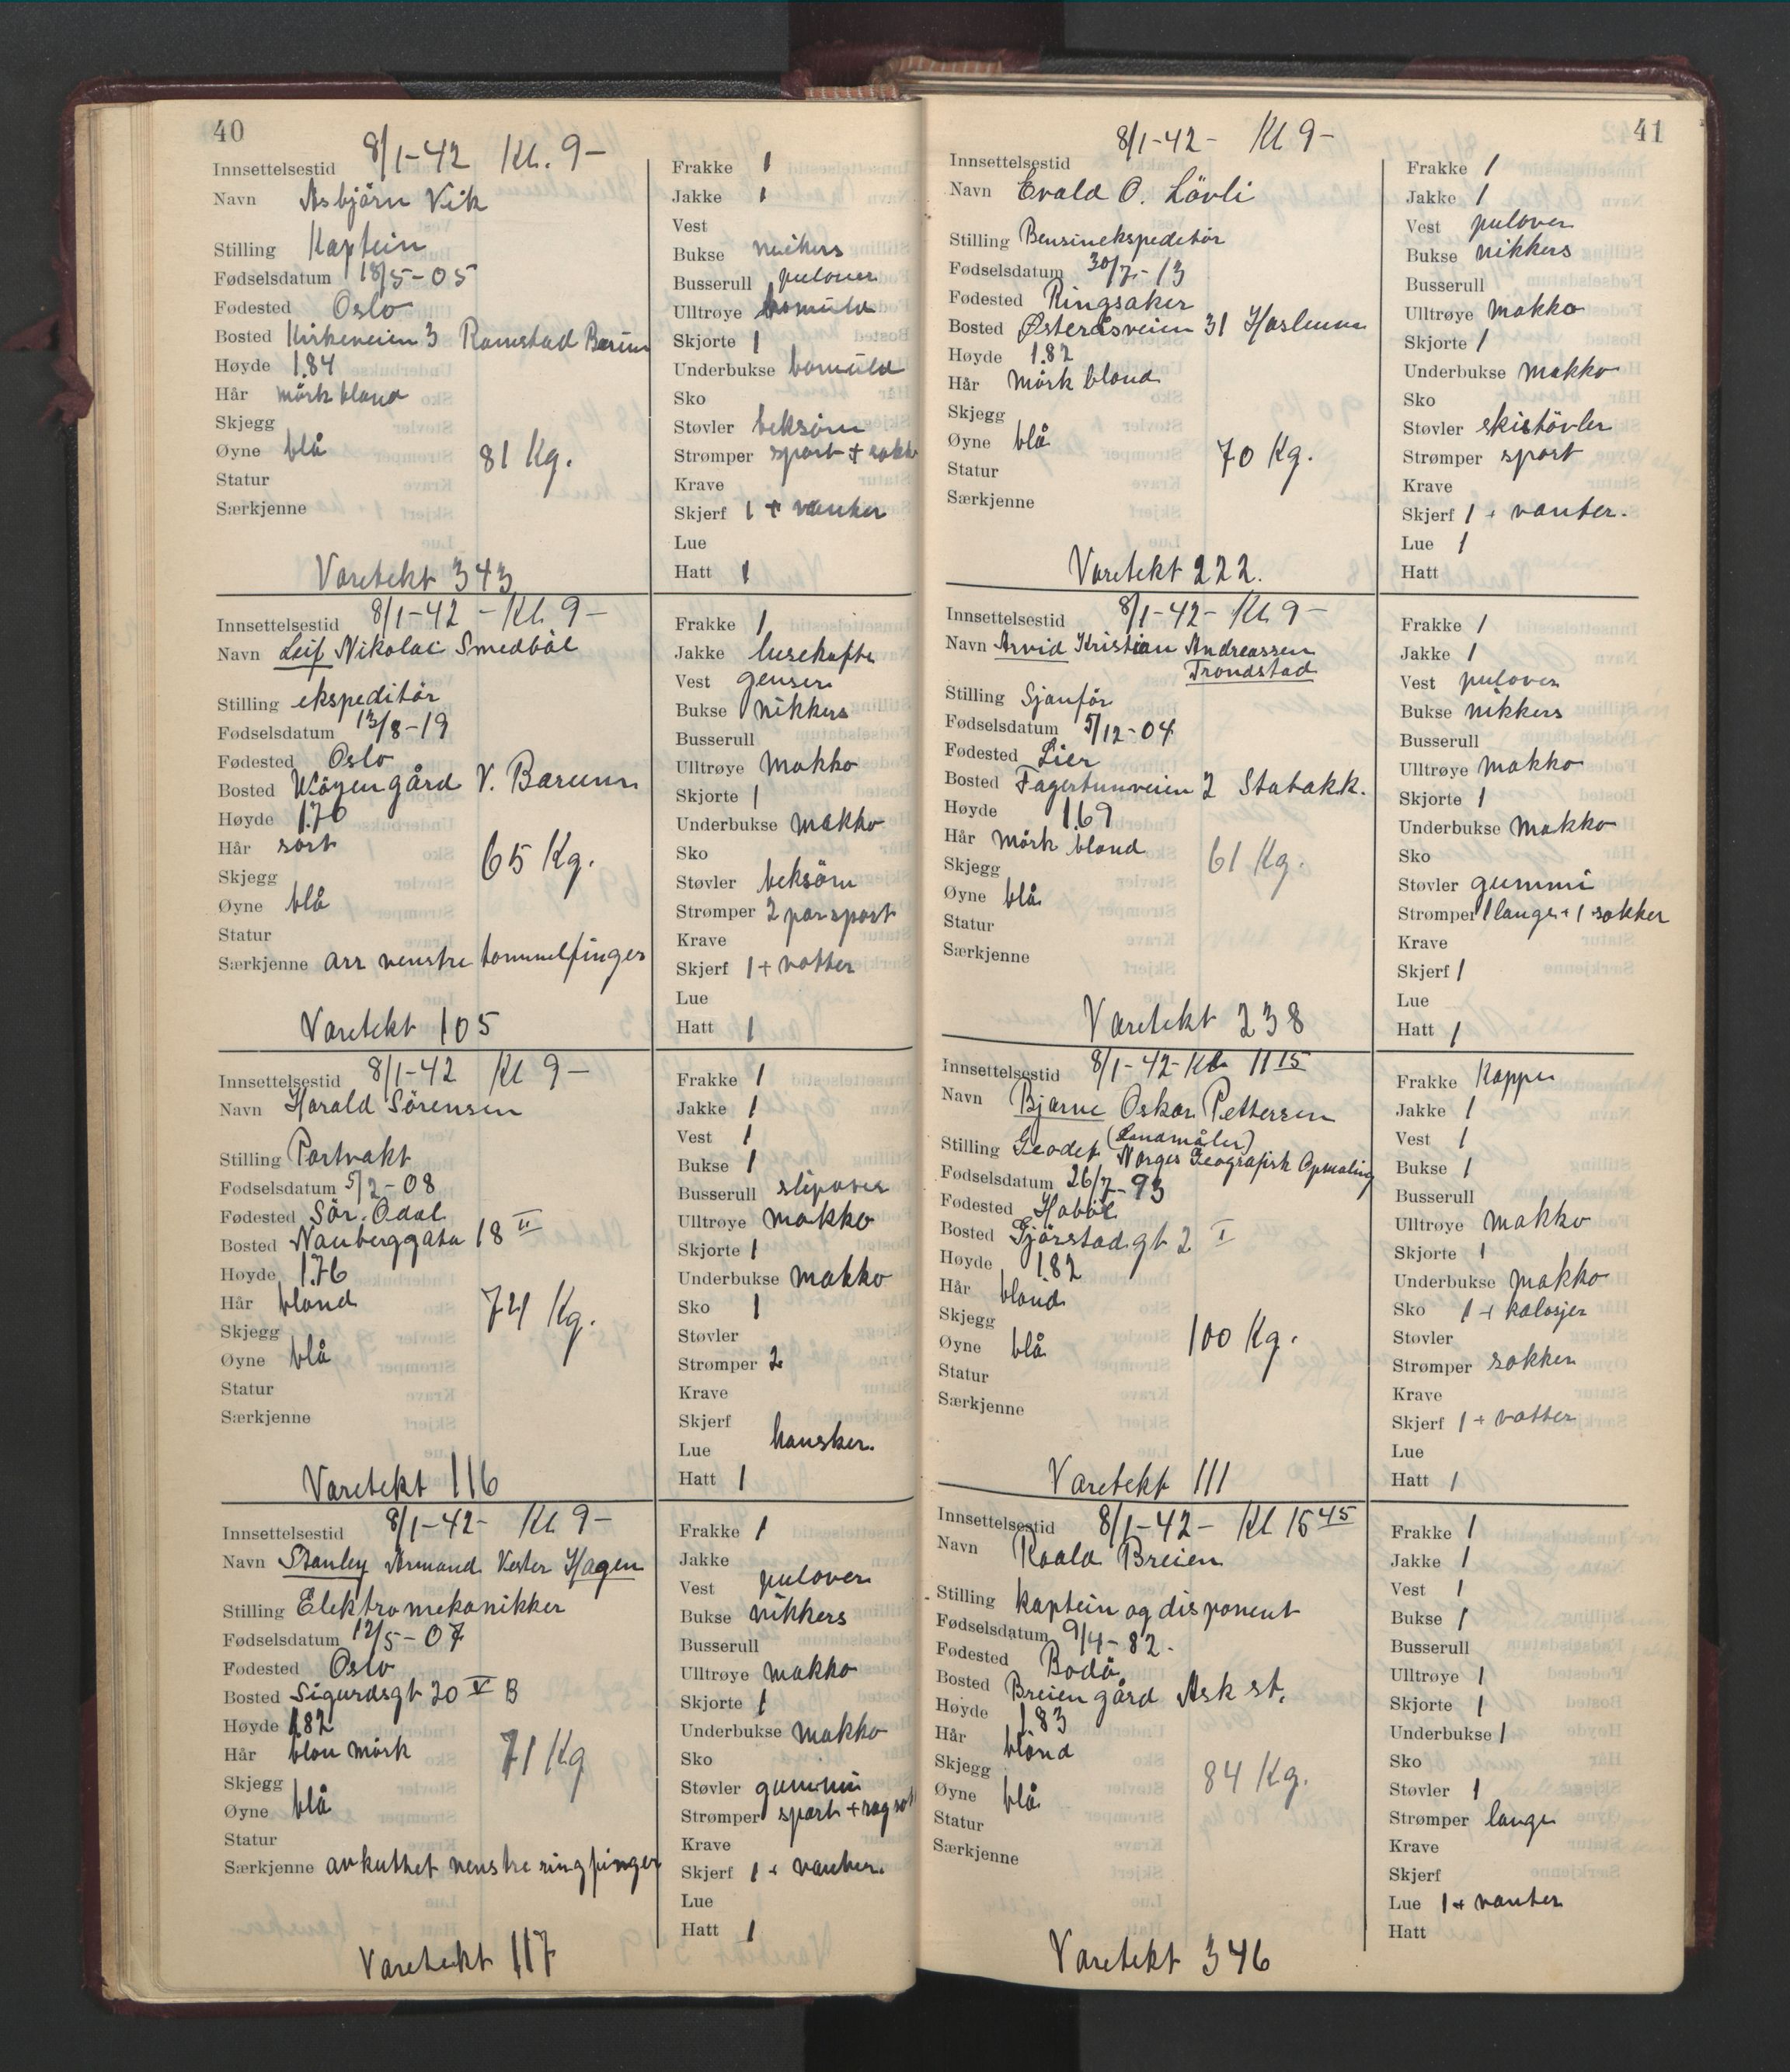 40
Innsettelsestid 8/1-42 Kl. 9-
Navn Asbjörn Vik
Stilling Kaptein
Fødselsdatum 18/5-05
Fødested Oslo
Bosted Kirkeveien 3 Ramstad Bærum
Høyde 1.84
Hår mörk blond
Skjegg
Øyne blå
81 Kg.
Statur
Særkjenne
Varetekt 343
Frakke 1
Jakke 1
Vest
Bukse nickers
Busserull pulover
Ulltrøye bomuld
Skjorte 1
Underbukse bomuld
Sko
Støvler beksöm
Strømper sport + sokk
Krave
Skjerf 1 + vanter
Lue
Hatt 1
Innsettelsestid 8/1-42 - Kl. 9-
Navn Leif Nikolai Smedböl
Stilling ekspeditör
Fødselsdatum 13/8-19
Fødested Oslo
Bosted Wöyen gård V. Bærum
Høyde 1.70
Hår sort
65 Kg.
Skjegg
Øyne blå
Statur
Særkjenne arr venstre tommelfinger
Varetekt 105
Frakke 1
Jakke lusekofte
Vest genser
Bukse nikkers
Busserull
Ulltrøye makko
Skjorte 1
Underbukse makko
Sko
Støvler beksöm
Strømper 2 par sport
Krave
Skjerf 1 + votter
Lue
Hatt 1
Innsettelsestid 8/1-42 Kl 9-
Navn Harald Sörensen
Stilling Portvakt
Fødselsdatum 5/2-08
Fødested Sör. Odal
Bosted Nanberggata 18 II
Høyde 1.76
Hår blond
74 Kg.
Skjegg
Øyne blå
Statur
Særkjenne
Varetekt 116
Frakke 1
Jakke 1
Vest 1
Bukse 1
Busserull slipover
Ulltrøye makko
Skjorte 1
Underbukse makko
Sko 1
Støvler
Strømper 2
Krave
Skjerf
Lue hansker.
Hatt 1
Innsettelsestid 8/1-42- Kl 9-
Navn Stanley Armand Vester Hagen
Stilling Elektromekanikker
Fødselsdatum 12/5-07
Fødested Oslo
Bosted Sigurdsgt 20 V B
Høyde 1.82
Hår blon mörk
71 Kg
Skjegg
Øyne blå
Statur
Særkjenne avkuttet venstre ringfinger
Varetekt 117
Frakke 1
Jakke
Vest pulover
Bukse nikkers
Busserull
Ulltrøye makko
Skjorte 1
Underbukse makko
Sko
Støvler gummi
Strømper sport + ragsok
Krave
Skjerf 1 + vanter.
Lue
Hatt 1
41
Innsettelsestid 8/1-42- Kl 9-
Navn Evald O. Lövli
Stilling Bensinekspeditör
Fødselsdatum 30/7-13
Fødested Ringsaker
Bosted Østeråsveien 31 Haslum
Høyde 1.82
Hår mörk blond
Skjegg
Øyne blå
70 Kg.
Statur
Særkjenne
Varetekt 222.
Frakke 1
Jakke 1
Vest pulover
Bukse nikkers
Busserull
Ulltrøye makko
Skjorte 1
Underbukse makko
Sko
Støvler skistövler
Strømper sport
Krave
Skjerf 1 + vanter.
Lue 1
Hatt
Innsettelsestid 8/1-42- Kl 9-
Navn Arvid Kristian Andreassen
Trondstad
Stilling Sjauför
Fødselsdatum 5/12-04
Fødested Lier
Bosted Fagertunveien 2 Stabakk.
Høyde 1.69
Hår mörk blond
61 Kg.
Skjegg
Øyne blå
Statur
Særkjenne
Varetekt 238
Frakke 1
Jakke 1
Vest pulover
Bukse nikkers
Busserull
Ulltrøye makko
Skjorte 1
Underbukse makko
Sko
Støvler gummi
Strømper 1 lange + 1 sokker
Krave
Skjerf 1
Lue
Hatt 1
Innsettelsestid 8/1-42- Kl. 11 15
Navn Bjarne Oskar Pettersen
(Landmåler)
Stilling Geodet Norges Geografisk Opmaling
Fødselsdatum 26/7-93
Fødested Hoböl
Bosted Gjörstad.gt 2 I
Høyde 1.82
Hår blond
Skjegg
Øyne blå
100 Kg.
Statur
Særkjenne
Varetekt 111
Frakke Kappe
Jakke 1
Vest 1
Bukse 1
Busserull
Ulltrøye makko
Skjorte 1
Underbukse makko
Sko 1 + kalosjer
Støvler
Strømper sokker
Krave
Skjerf 1 + votter
Lue
Hatt 1
Innsettelsestid 8/1-42- Kl 15 45
Navn Roald Breien
Stilling kaptein og disponent
Fødselsdatum 9/4-82-
Fødested Bodö
Bosted Breien gård Ask st.
Høyde 1.83
Hår blond
Skjegg
84 Kg.
Øyne blå
Statur
Særkjenne
Varetekt 346
Frakke 1
Jakke 1
Vest 1
Bukse 1
Busserull
Ulltrøye 1
Skjorte 1
Underbukse 1
Sko
Støvler 1
Strømper lange
Krave
Skjerf
Lue 1 + vanter
Hatt